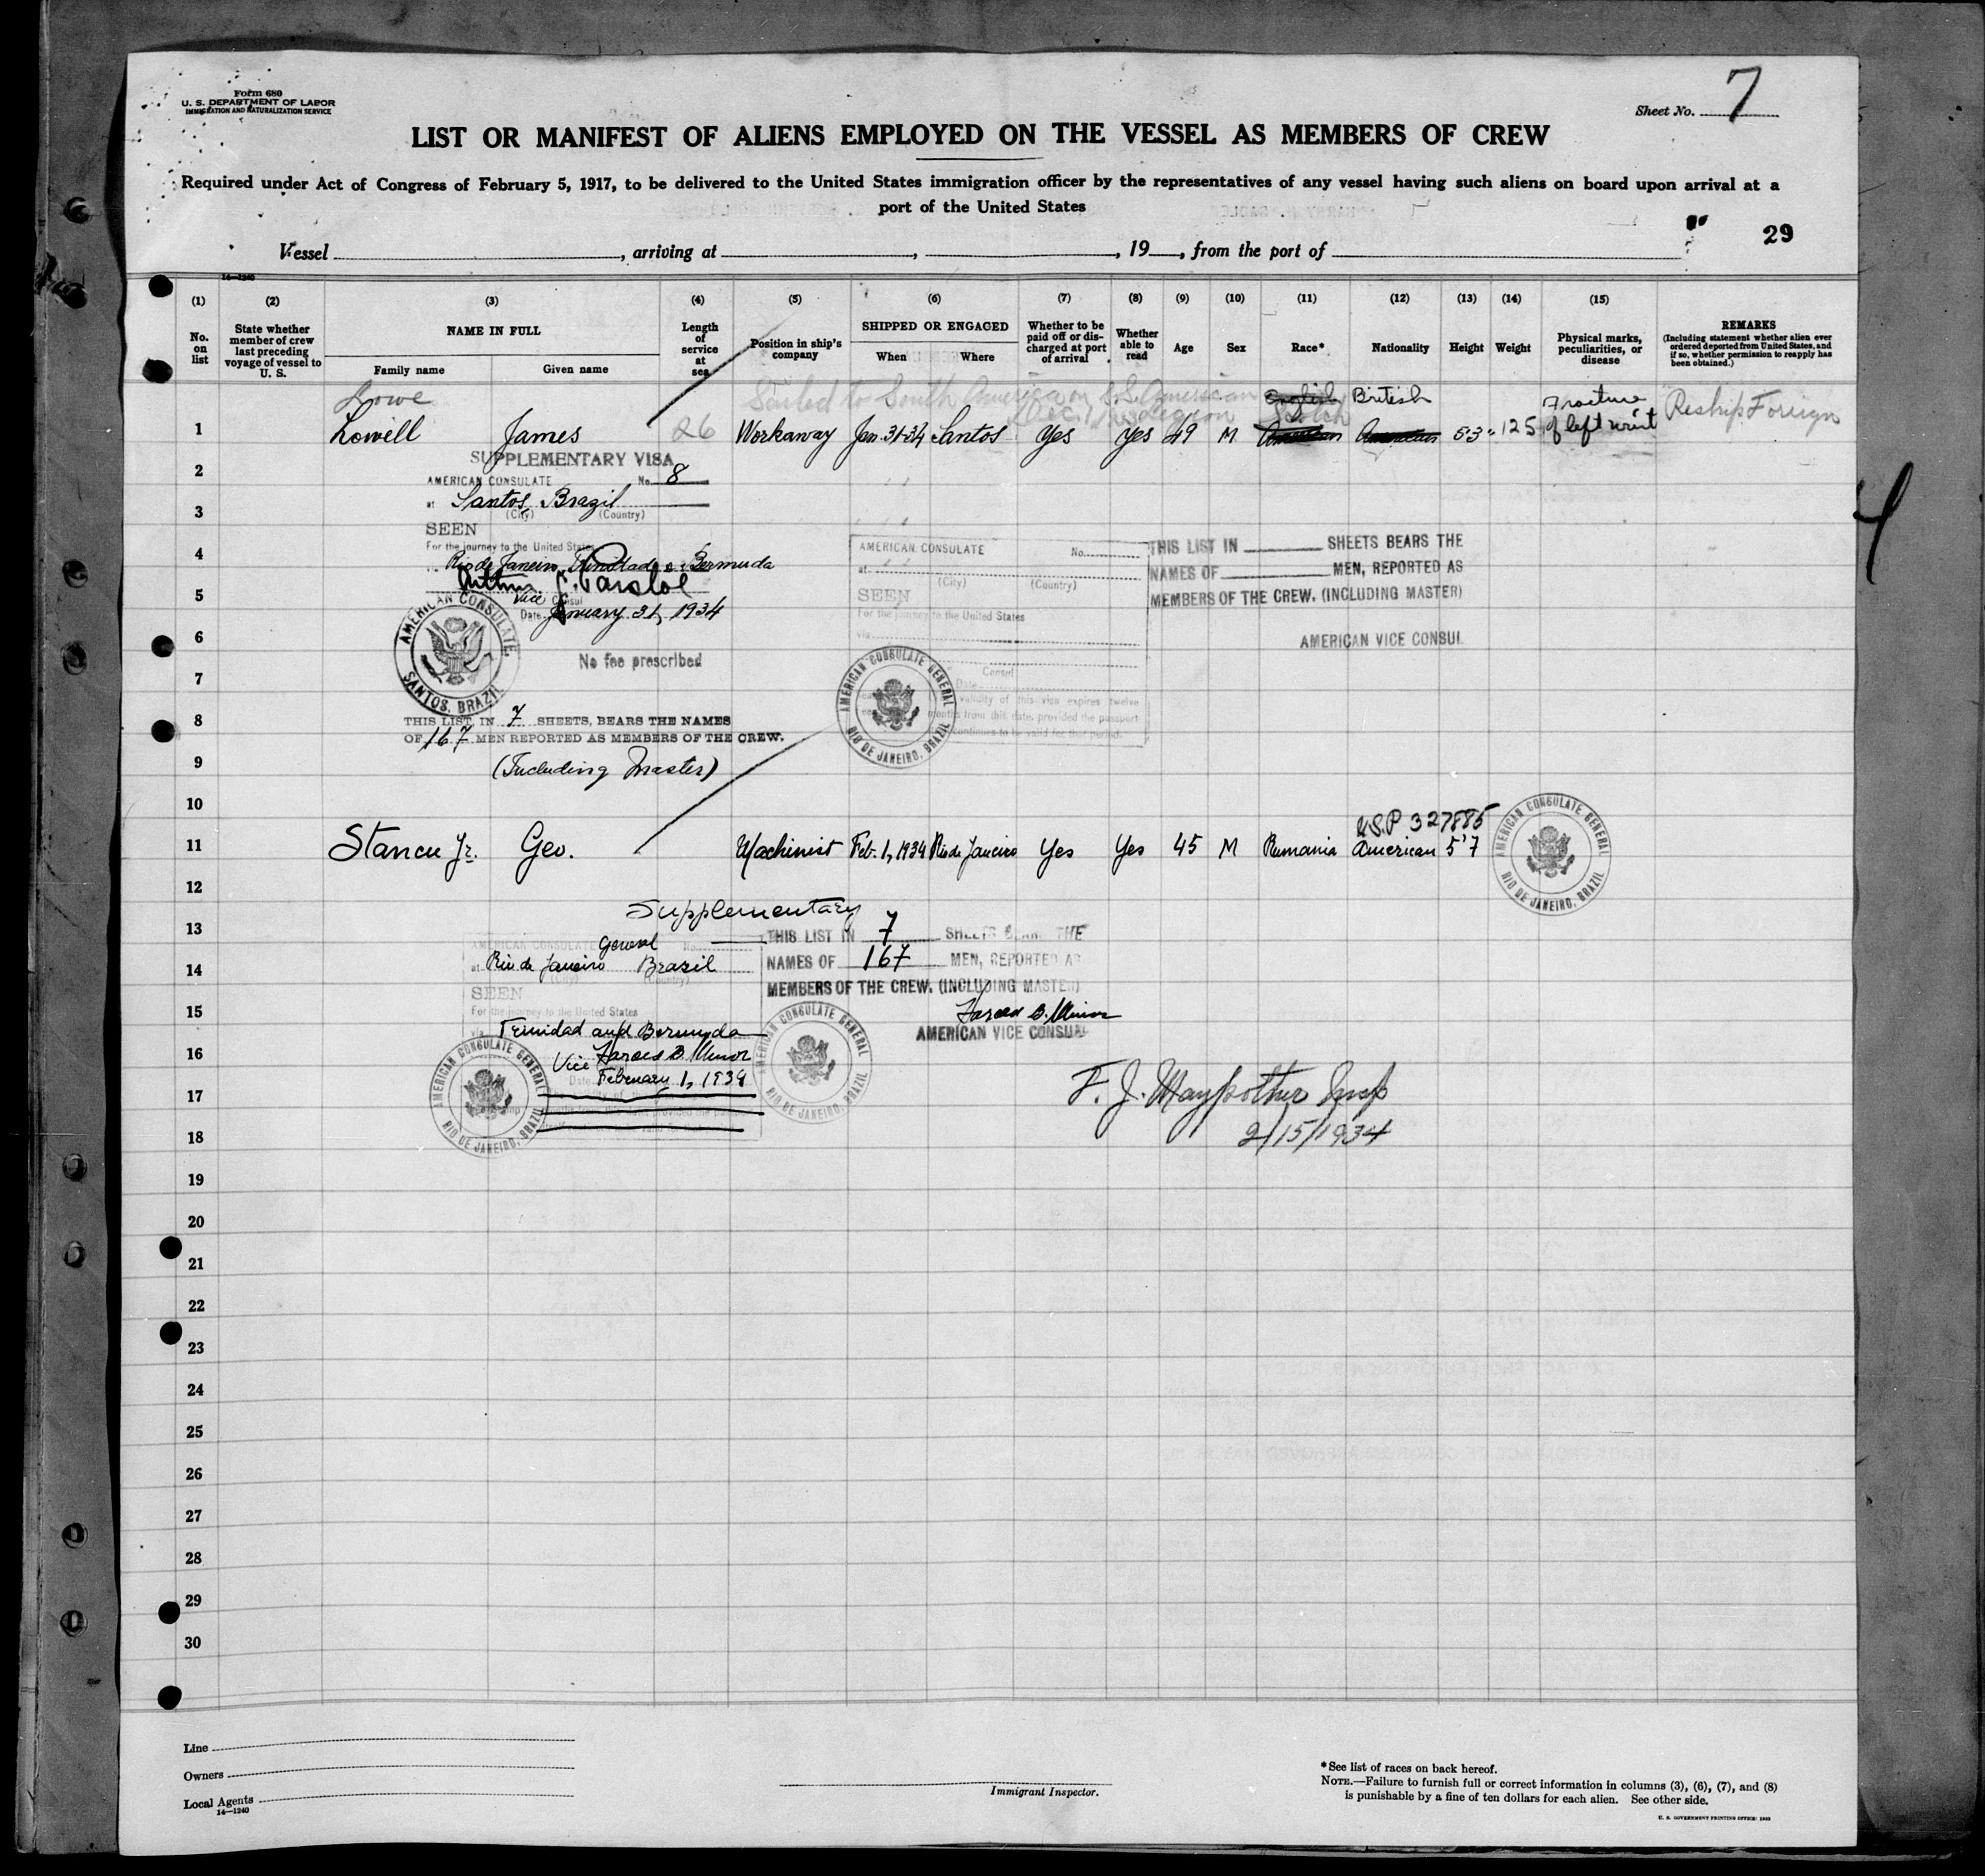 Form 680
U. S. DEPARTMENT OF LABOR
IMMIGRATION AND NATURALIZATION SERVICE
Sheet No. 7
LIST OR MANIFEST OF ALIENS EMPLOYED ON THE VESSEL AS MEMBERS OF CREW
Required under Act of Congress of February 5, 1917, to be delivered to the United States immigration officer by the representatives of any vessel having such aliens on board upon arrival at a
port of the United States
29
Vessel , arriving at , , 19 , from the port of
14—1240
(1) (2) (3) (4) (5) (6) (7) (8) (9) (10) (11) (12) (13) (14) (15)
No. on list
State whether member of crew last preceding voyage of vessel to U. S.
NAME IN FULL
Family name
Given name
Length of service at sea
Position in ship's company
SHIPPED OR ENGAGED
When
Where
Whether to be paid off or discharged at port of arrival
Whether able to read
Age
Sex
Race*
Nationality
Height
Weight
Physical marks, peculiarities, or disease
REMARKS
(Including statement whether alien ever ordered deported from United States, and if so, whether permission to reapply has been obtained.)
Lowe Sailed to South America on S.S. American Legion Dec. English British Fracture Reship Foreign
1 Lowell James 26 Workaway Jan. 31-34 Santos Yes Yes 49 M Scotch American American 5-3 125 of left wrist
SUPPLEMENTARY VISA
2
AMERICAN CONSULATE No. 8
at Santos, Brazil
(City) (Country)
3
SEEN
For the journey to the United States
4
Rio de Janeiro, Trinidad & Bermuda
5
Vice Consul
Date January 31, 1934
AMERICAN CONSULATE. SANTOS, BRAZIL
6
No fee prescribed
7
8
THIS LIST, IN 7 SHEETS, BEARS THE NAMES
OF 167 MEN REPORTED AS MEMBERS OF THE CREW.
9
(Including Master)
AMERICAN CONSULATE No.
at
(City) (Country)
SEEN
For the journey to the United States
via
Consul
Date
validity of this visa expires twelve
months from this date, provided the passport
continues to be valid for that period.
AMERICAN CONSULATE GENERAL RIO DE JANEIRO, BRAZIL
THIS LIST IN SHEETS BEARS THE
NAMES OF MEN, REPORTED AS
MEMBERS OF THE CREW. (INCLUDING MASTER)
AMERICAN VICE CONSUL
4
10
U.S.P 327885
11 Stancu Jr. Geo. Machinist Feb. 1, 1934 Rio de Janeiro Yes Yes 45 M Rumania American 5'7
AMERICAN CONSULATE GENERAL RIO DE JANEIRO, BRAZIL
12
Supplementary
13
AMERICAN CONSULATE General No.
14
at Rio de Janeiro Brazil
(City) (Country)
SEEN
15
For the journey to the United States
via Trinidad and Bermuda
16
Harold B. Minor
Vice
Date February 1, 1934
17
AMERICAN CONSULATE GENERAL RIO DE JANEIRO, BRAZIL
18
THIS LIST IN 7 SHEETS BEARS THE
NAMES OF 167 MEN, REPORTED AS
MEMBERS OF THE CREW. (INCLUDING MASTER)
Harold B. Minor
AMERICAN VICE CONSUL
AMERICAN CONSULATE GENERAL RIO DE JANEIRO, BRAZIL
F. J. Insp
2/15/1934
19
20
21
22
23
24
25
26
27
28
29
30
Line
Owners
Local Agents
14—1240
Immigrant Inspector.
*See list of races on back hereof.
NOTE.—Failure to furnish full or correct information in columns (3), (6), (7), and (8)
is punishable by a fine of ten dollars for each alien. See other side.
U. S. GOVERNMENT PRINTING OFFICE: 1933